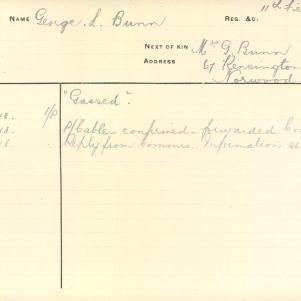 NAME George. L. Bunn REG. &C. 11th Fie
NEXT OF KIN Mr G. Bunn
ADDRESS 67 Kensington
Norwood
1/P "Gassed".
18. P/Cable confirmed - forwarded
18. Reply from Commrs. Information